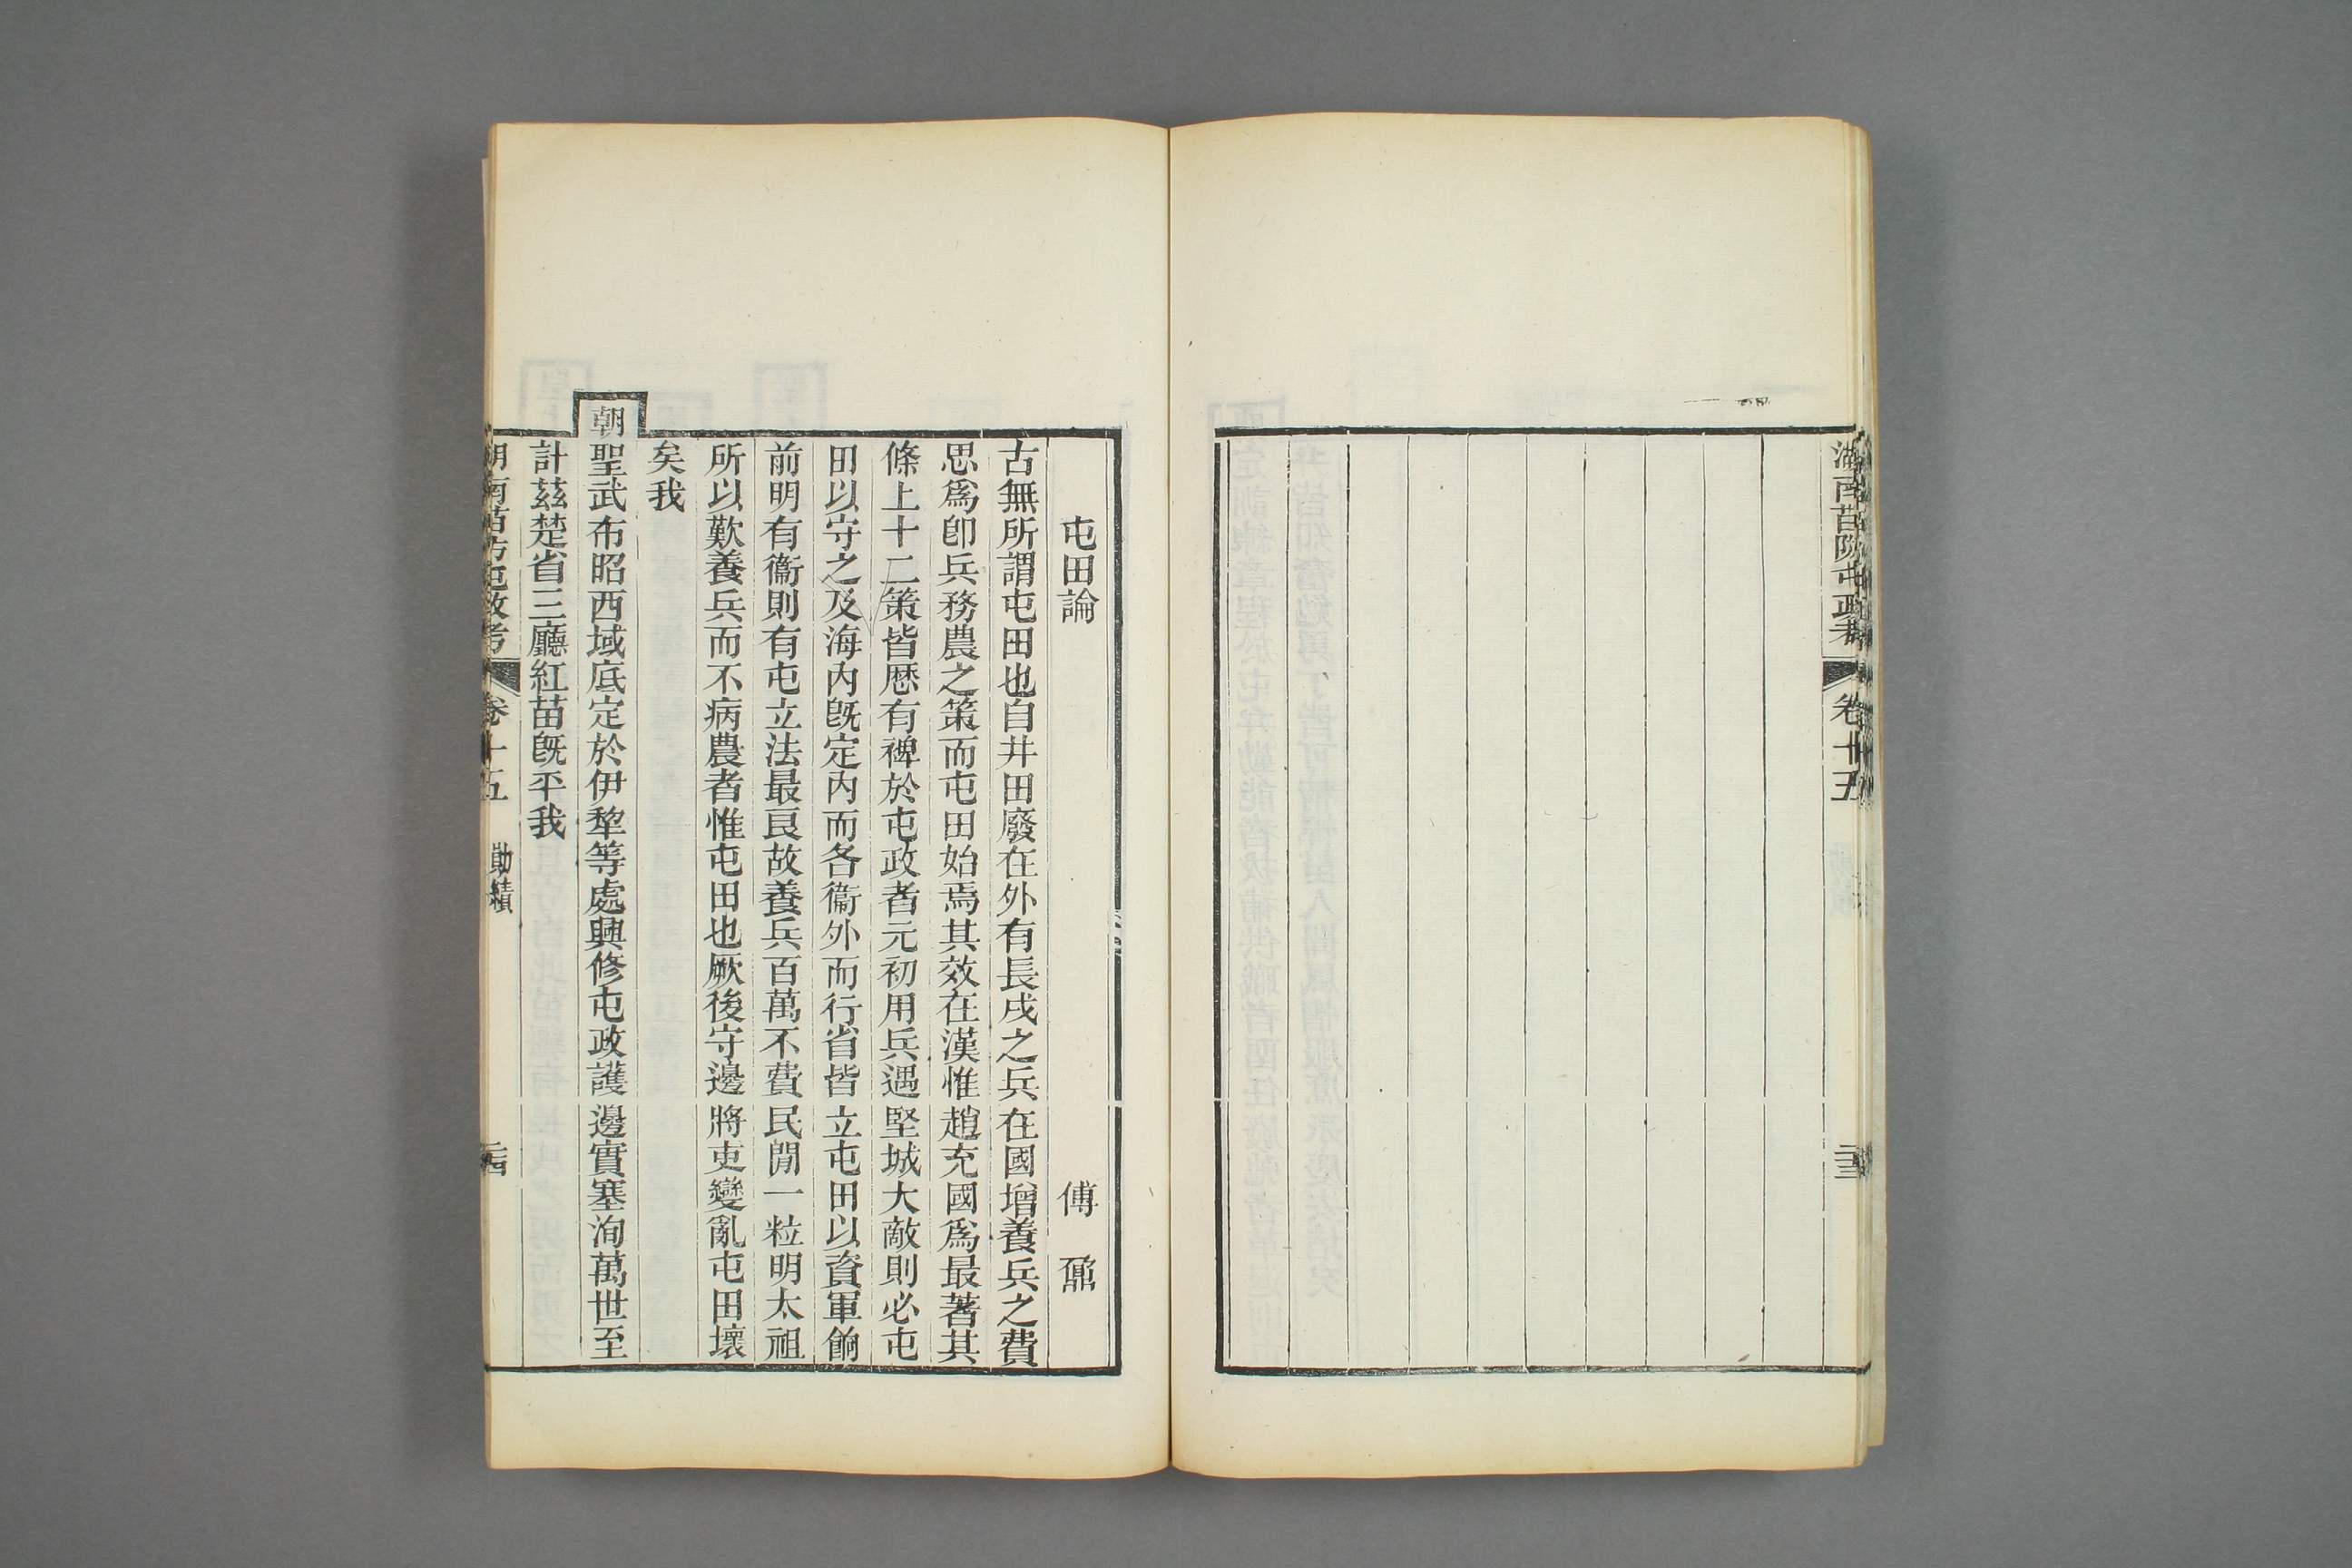 湖南苗防屯政考 卷十五 二十三
屯田論 傅鼐
古無所謂屯田也自井田廢在外有長戍之兵在國增養兵之費
思爲卽兵務農之策而屯田始焉其效在漢惟趙充國爲最著其
條上十二策皆歷有裨於屯政者元初用兵遇堅城大敵則必屯
田以守之及海內旣定內而各衞外而行省皆立屯田以資軍餉
前明有衞則有屯立法最艮故養兵百萬不費民閒一粒明太祖
所以歎養兵而不病農者惟屯田也厥後守邊將吏變亂屯田壞
矣我
朝聖武布昭西域底定於伊犂等處興修屯政護邊實塞洵萬世至
計茲楚省三廳紅苗旣平我
湖南苗防屯政考 卷十五 勛績 二十四